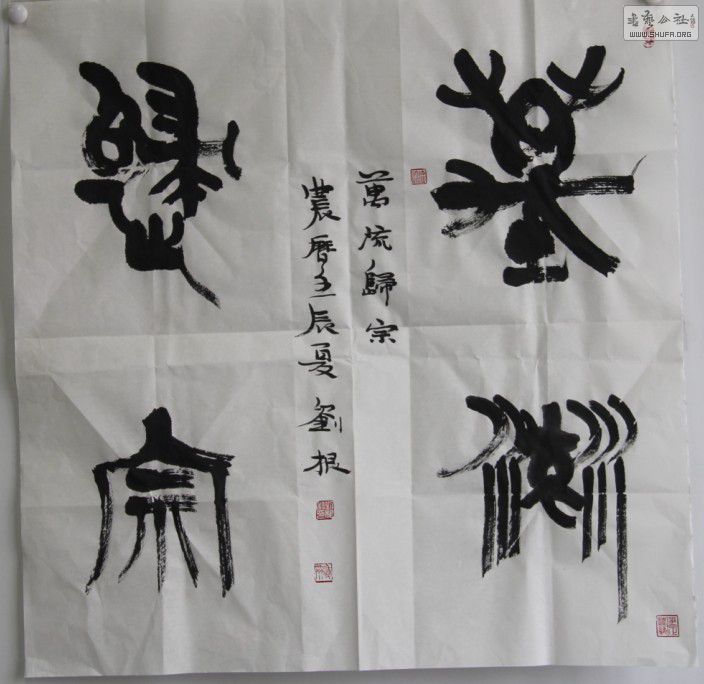 書藝公社
WWW.SHUFA.ORG
萬流
萬流歸宗
農曆壬辰夏劉根
歸宗